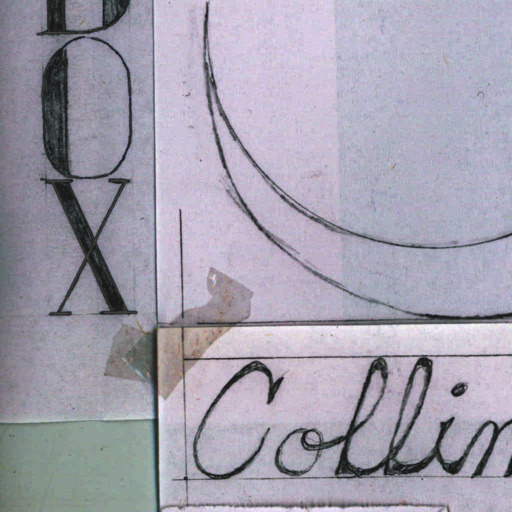 OX
Collin